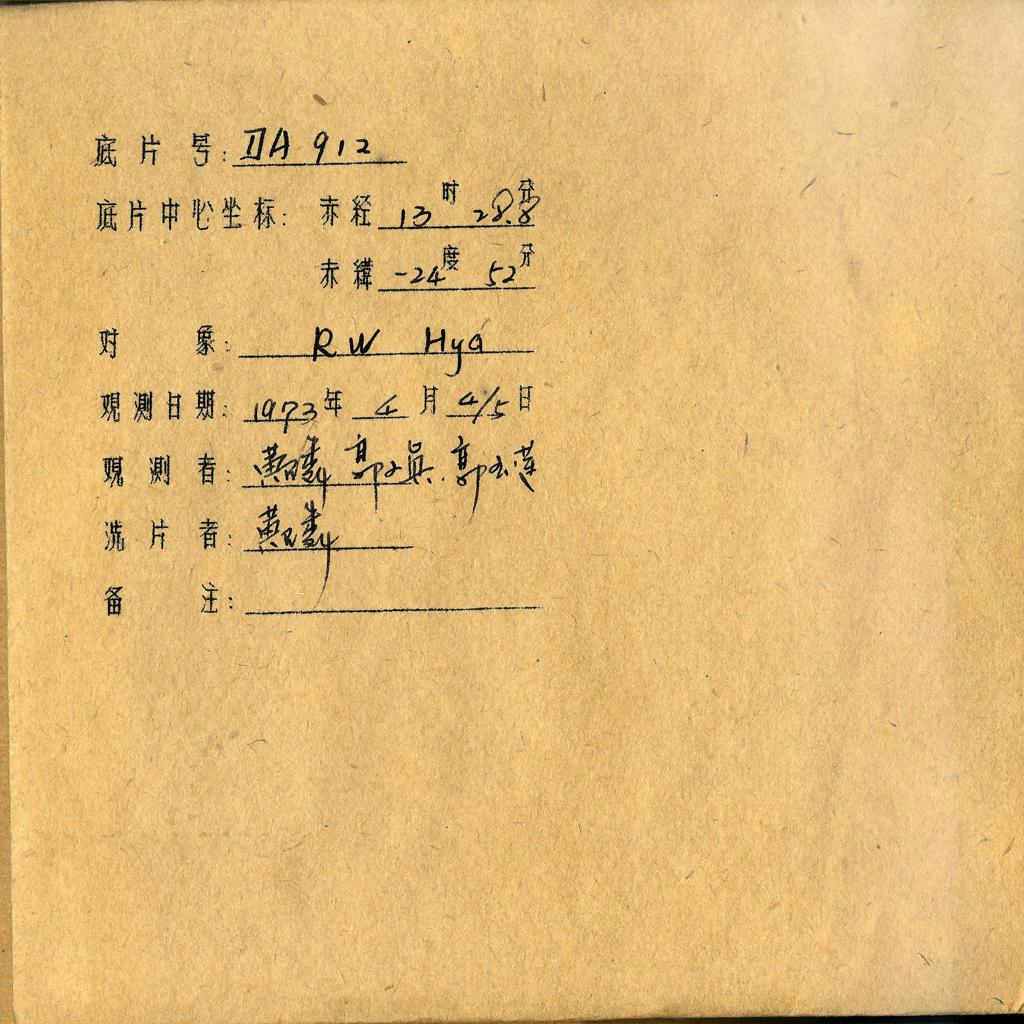 底片号: IIA 912
底片中心坐标: 赤经 13时 28.8分
赤纬 -24度 52分
对象: RW Hya
观测日期: 1973年 4月 4/5日
观测者: 黄 郭 郭玉莲
洗片者: 黄
备注: